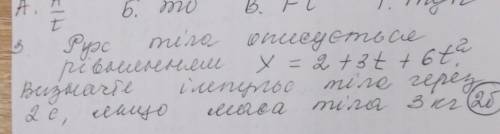 А. A/t Б. mv В. Ft Г. mgh
3 Рух тіла описується
рівнянням x = 2 + 3t + 6t².
Визначте імпульс тіла через
2 с, якщо маса тіла 3 кг 2б